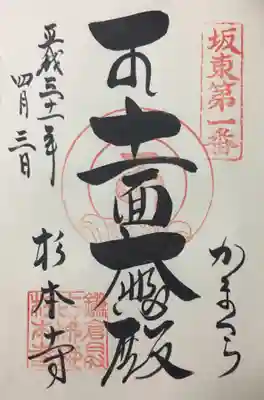 坂東第一番
かまくら
十一面大悲殿
平成三十一年
四月三日
杉本寺